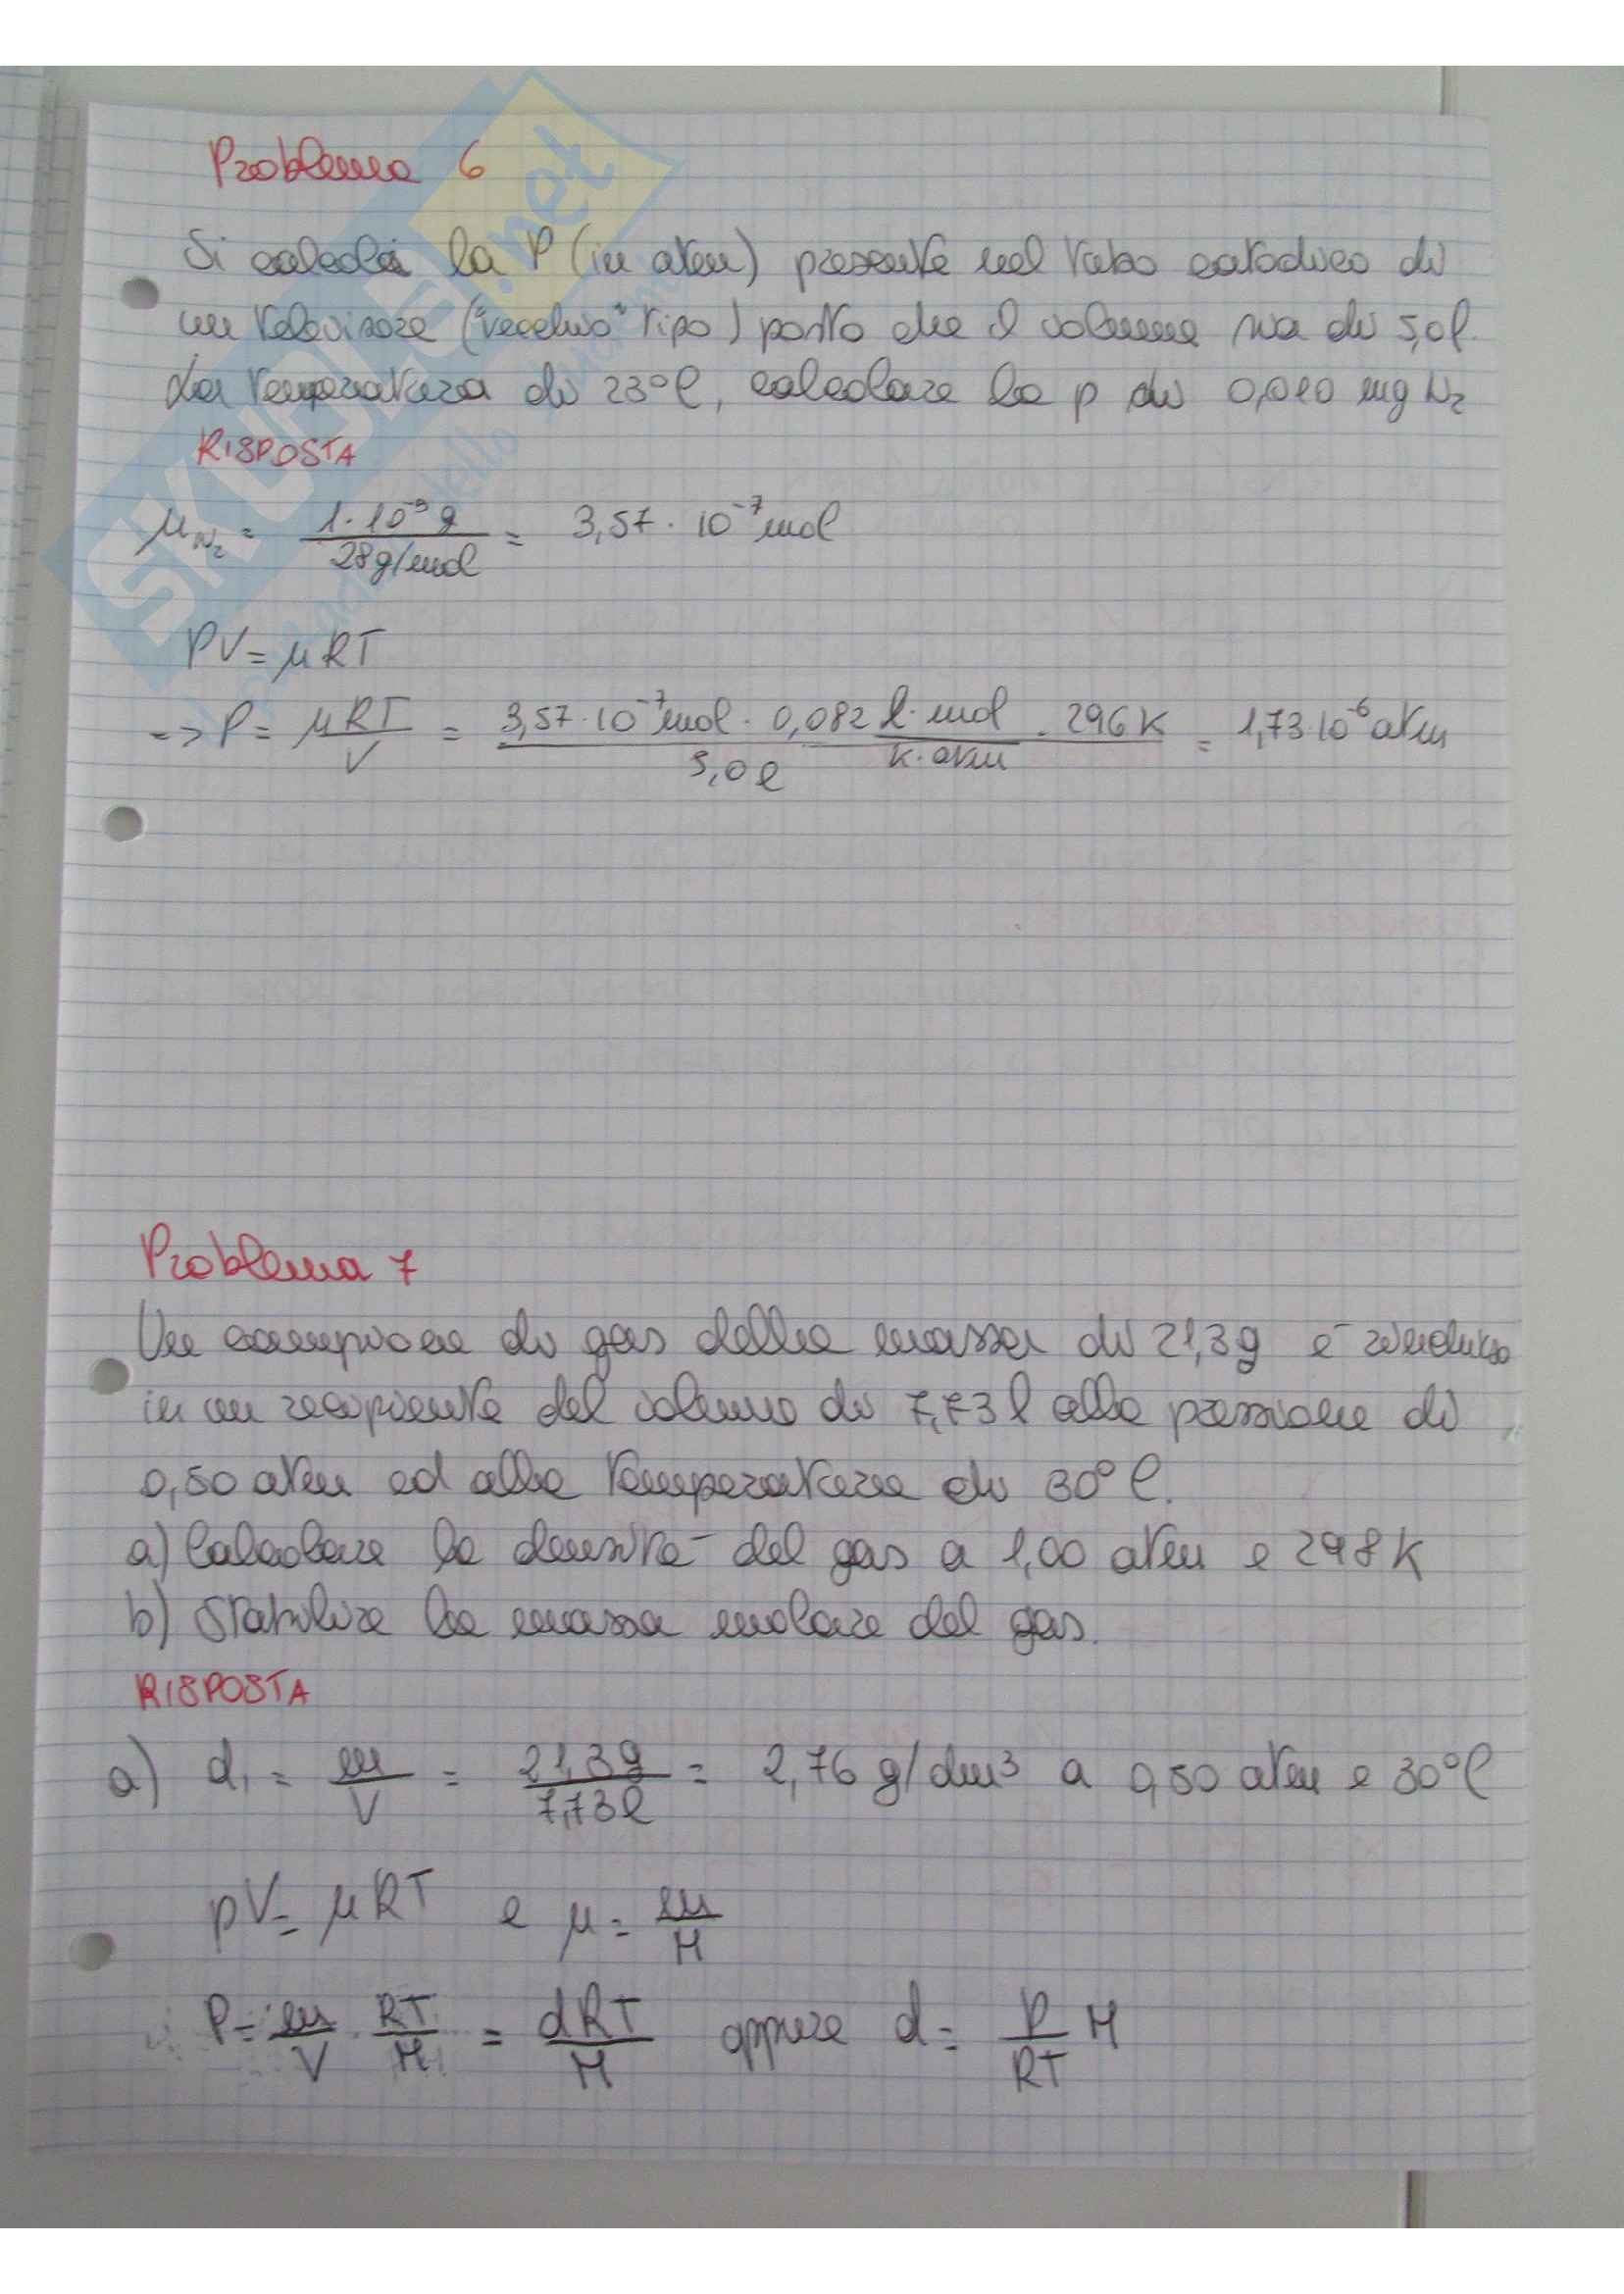 Problema 6
Si calcoli la P (in atm) presente nel tubo catodico di
un televisore ("vecchio" tipo) posto che il volume sia di 5,0l.
La temperatura di 23°C, calcolare la p di 0,010 mg N₂
RISPOSTA
μN₂ = 1·10⁻⁵g / 28g/mol = 3,57·10⁻⁷mol
PV = μRT
=> P = μRT / V = 3,57·10⁻⁷mol · 0,082 l·mol / K·atm · 296K / 5,0l = 1,73·10⁻⁶atm
Problema 7
Un campione di gas della massa di 21,3g è rinchiuso
in un recipiente del volume di 7,73l alla pressione di
0,50 atm ed alla temperatura di 30°C.
a) Calcolare la densità del gas a 1,00 atm e 298K
b) Stabilire la massa molare del gas.
RISPOSTA
a) d₁ = m / V = 21,3g / 7,73l = 2,76 g/dm³ a 0,50 atm e 30°C
pV = μRT e μ = m / M
P = m / V · RT / M = dRT / M oppure d = P / RT M
SKUOLA.net